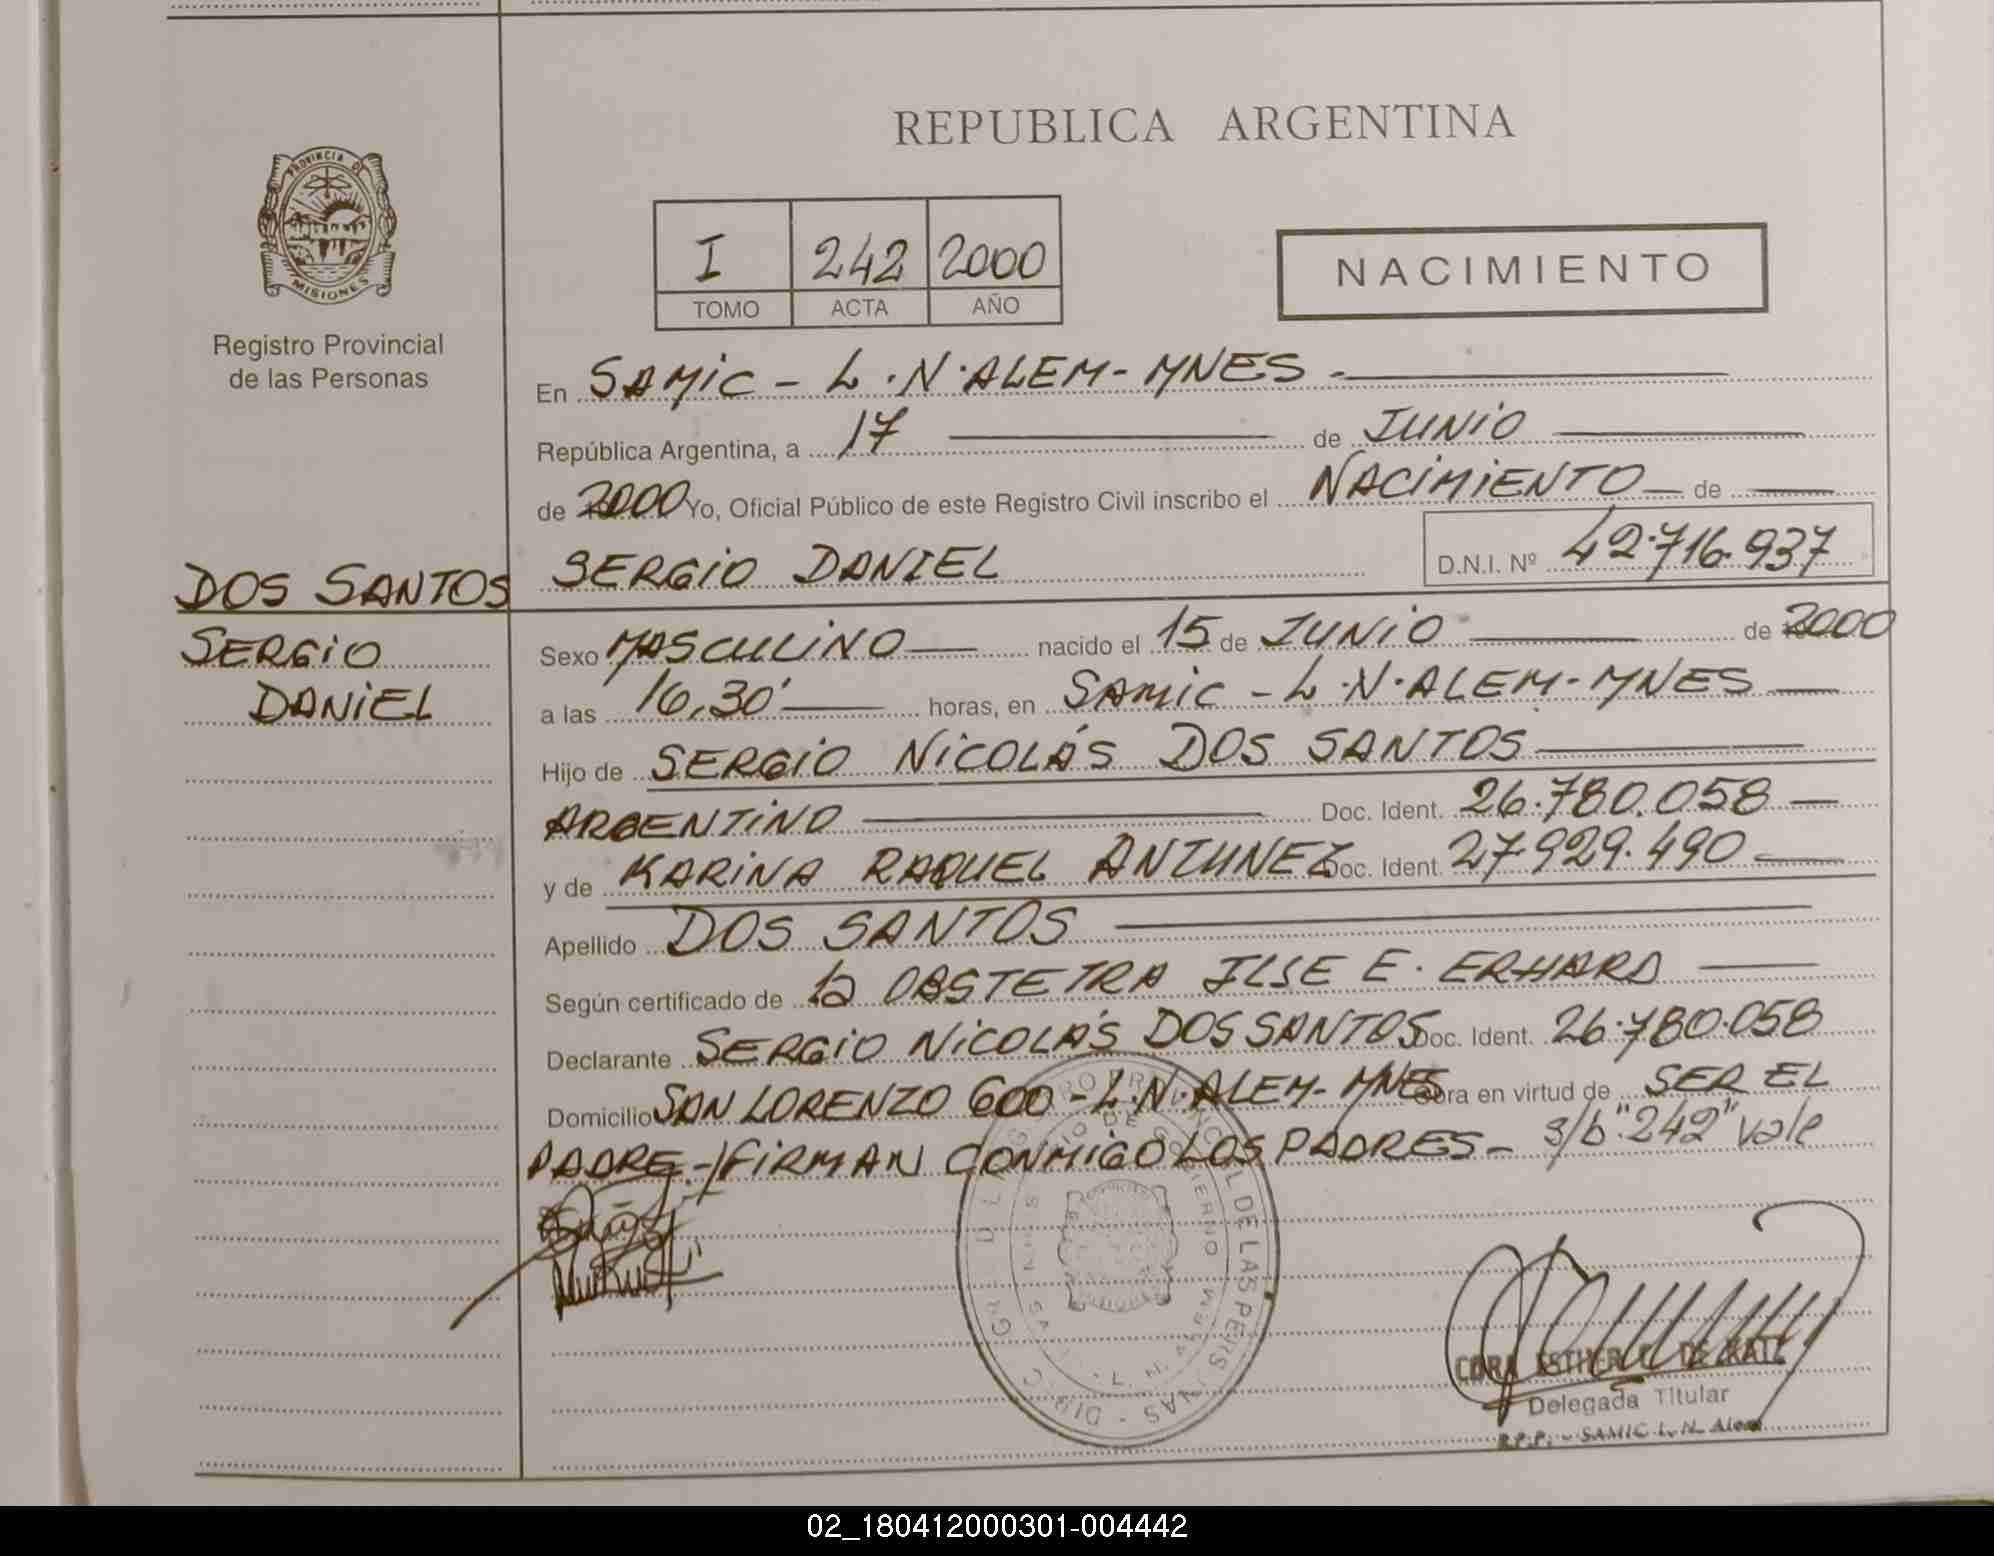 REPUBLICA ARGENTINA
PROVINCIA DE
MISIONES
Registro Provincial
de las Personas
I 242 2000
TOMO ACTA AÑO
NACIMIENTO
En SAMIC - L.N.ALEM - MNES.-
República Argentina, a 17 de JUNIO
de 2000 Yo, Oficial Público de este Registro Civil inscribo el NACIMIENTO de
DOS SANTOS SERGIO DANIEL D.N.I. Nº 42.716.937
SERGIO
DANIEL
Sexo MASCULINO nacido el 15 de JUNIO de 2000
a las 16,30' horas, en SAMIC - L.N.ALEM - MNES
Hijo de SERGIO NICOLÁS DOS SANTOS
ARGENTINO Doc. Ident. 26.780.058
y de KARINA RAQUEL ANTUNEZ Doc. Ident. 27.929.490
Apellido DOS SANTOS
Según certificado de la OBSTETRA ILSE E. ERHARD
Declarante SERGIO NICOLÁS DOS SANTOS Doc. Ident. 26.780.058
Domicilio SAN LORENZO 600 - L.N.ALEM - MNES obra en virtud de SER EL
PADRE.- FIRMAN CONMIGO LOS PADRES - s/b "242" vale
CORA ESTHER DE RATZ
Delegada Titular
R.P.P. - SAMIC L. N. Alem
02_180412000301-004442